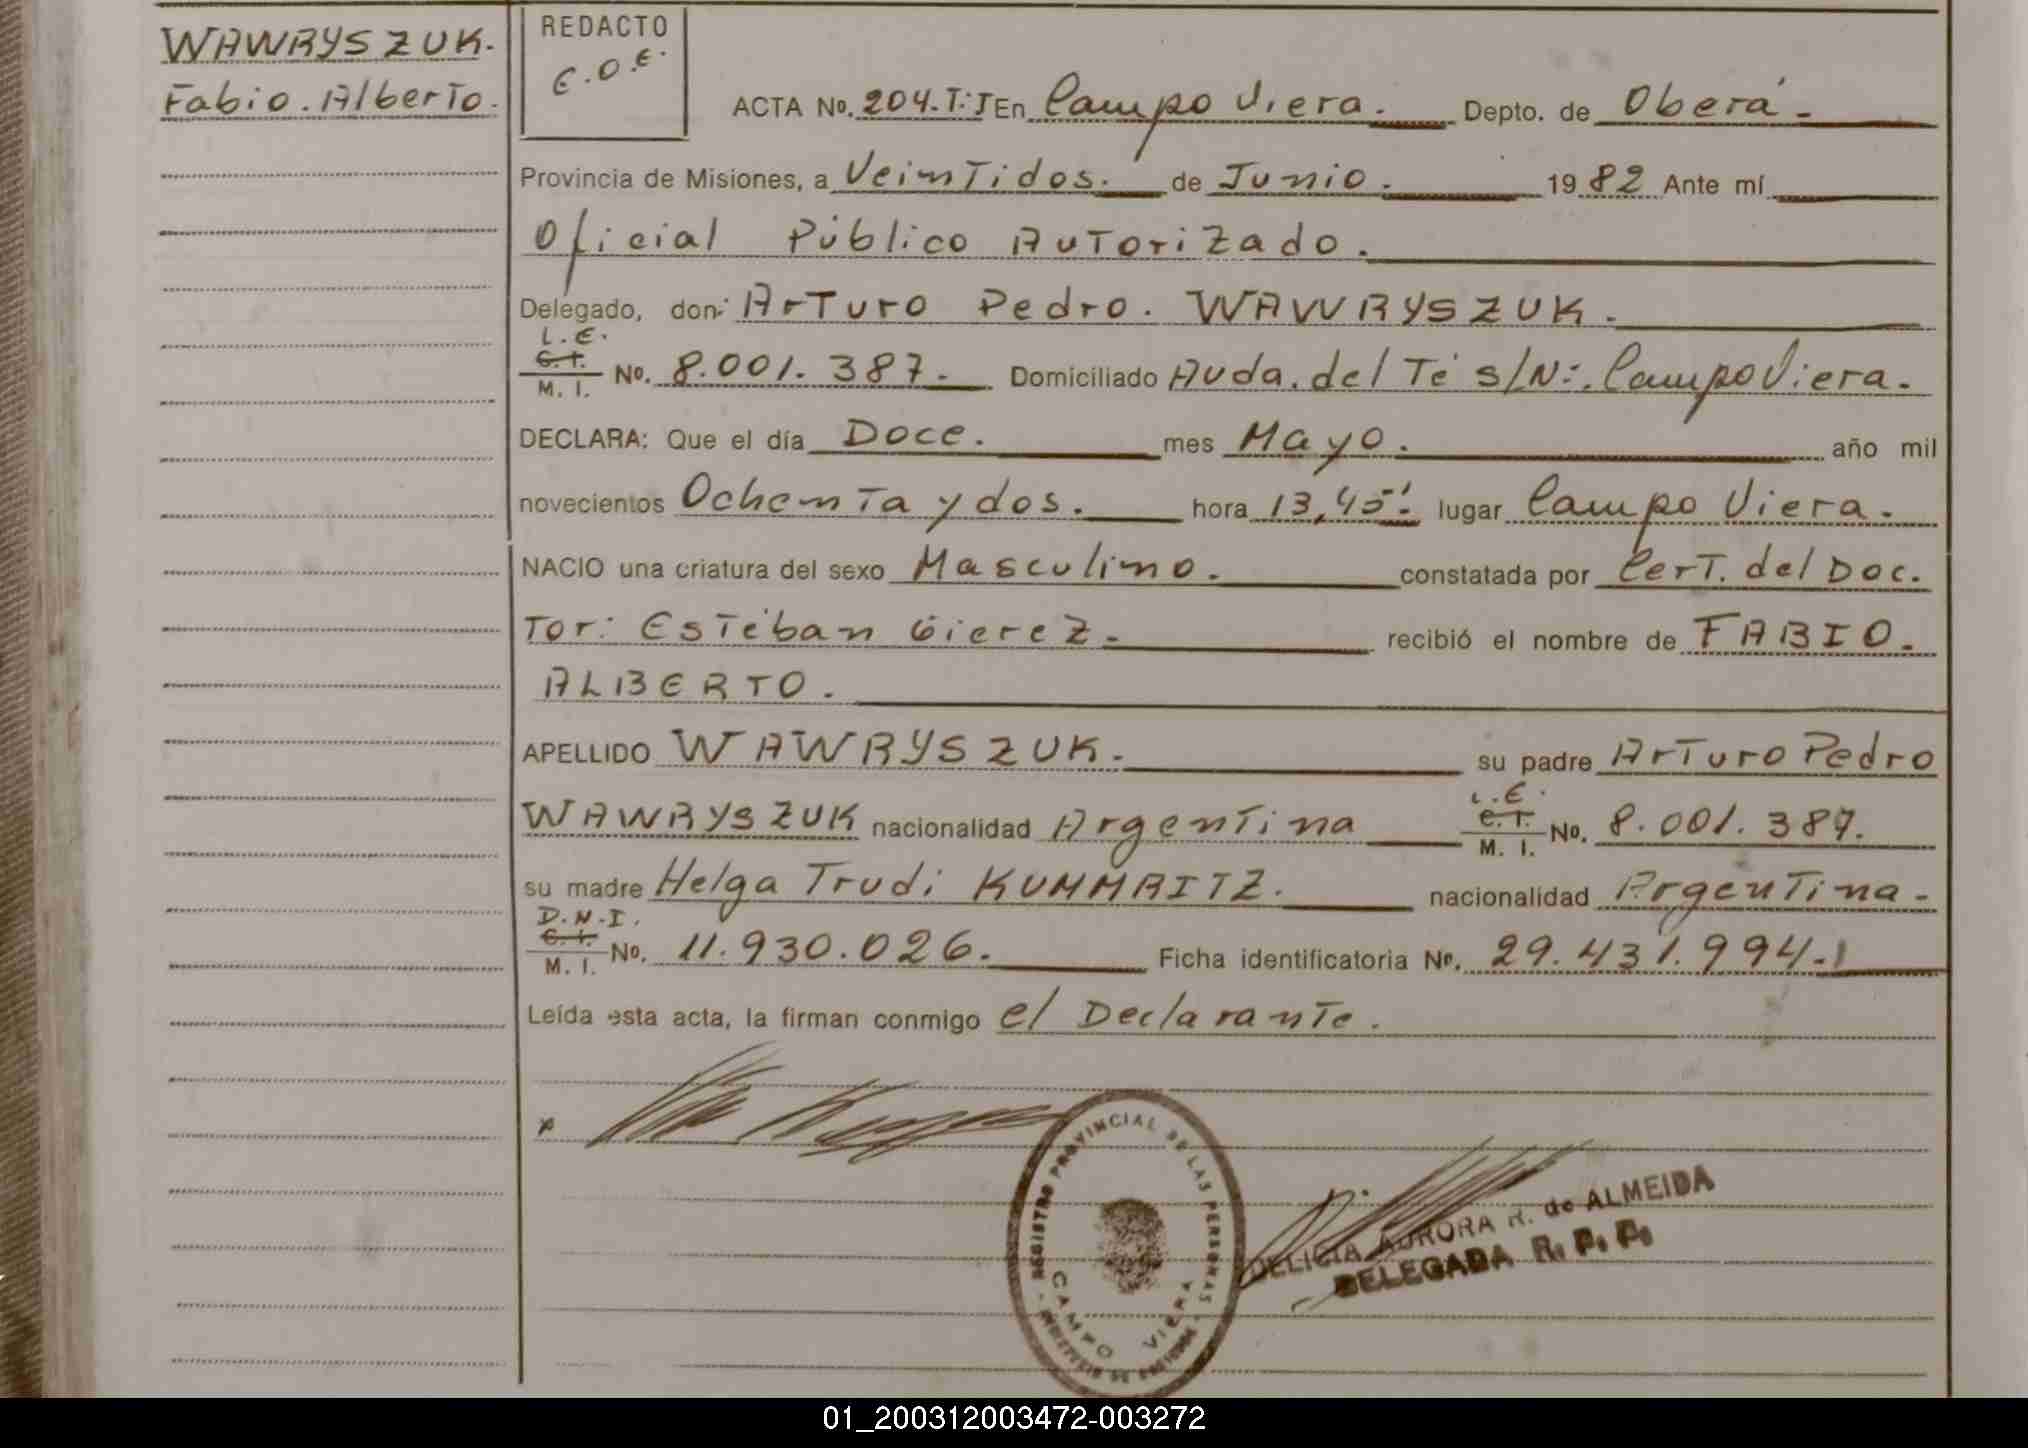 WAWRYSZUK.
Fabio. Alberto.
REDACTO
E.O.E.
ACTA No. 204.T:I En Campo Viera. Depto. de Oberá.
Provincia de Misiones, a Veintidos. de Junio. 1982 Ante mí
Oficial Público Autorizado.
Delegado, don: Arturo Pedro. WAWRYSZUK.
L.E.
C.I.
M. I. No. 8.001.387. Domiciliado Avda. del Té s/N:. Campo Viera.
DECLARA: Que el día Doce. mes Mayo. año mil
novecientos Ochenta y dos. hora 13,45'. lugar Campo Viera.
NACIO una criatura del sexo Masculino. constatada por Cert. del Doc.
Tor: Estéban Gierez. recibió el nombre de FABIO.
ALBERTO.
APELLIDO WAWRYSZUK. su padre Arturo Pedro
L.E.
C.I.
WAWRYSZUK nacionalidad Argentina M. I. No. 8.001.387.
su madre Helga Trudi KUMMRITZ. nacionalidad Argentina.
D.N.I.
C.I.
M. I. No. 11.930.026. Ficha identificatoria No. 29.431.994.
Leída esta acta, la firman conmigo el Declarante.
x
REGISTRO PROVINCIAL DE LAS PERSONAS
CAMPO VIERA
DELICIA AURORA R. de ALMEIDA
DELEGADA R. P. P.
01_200312003472-003272